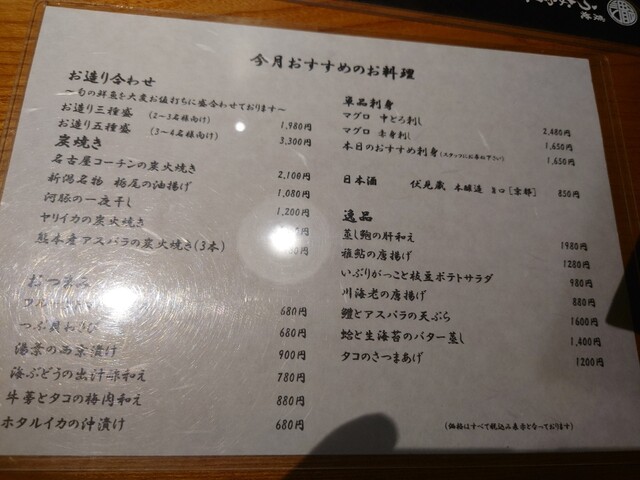 今月おすすめのお料理
お造り合わせ
〜旬の鮮魚を大変お値打ちに盛合わせております〜
お造り三種盛 (2〜3名様向け) 1,980円
お造り五種盛 (3〜4名様向け) 3,300円
炭焼き
名古屋コーチンの炭火焼き 2,100円
新潟名物 栃尾の油揚げ 1,080円
河豚の一夜干し 1,200円
ヤリイカの炭火焼き
熊本産アスパラの炭火焼き(3本)
おつまみ
680円
つぶ貝わさび 680円
湯葉の西京漬け 900円
海ぶどうの出汁酢和え 780円
牛蒡とタコの梅肉和え 880円
ホタルイカの沖漬け 680円
単品刺身
マグロ 中とろ刺し 2,480円
マグロ 赤身刺し 1,650円
本日のおすすめ刺身(スタッフにお尋ね下さい) 1,650円
日本酒 伏見蔵 本醸造 辛口[京都] 850円
逸品
蒸し鮑の肝和え 1980円
稚鮎の唐揚げ 1280円
いぶりがっこと枝豆ポテトサラダ 980円
川海老の唐揚げ 880円
鱧とアスパラの天ぷら 1600円
蛤と生海苔のバター蒸し 1,400円
タコのさつまあげ 1200円
(価格はすべて税込み表示となっております)